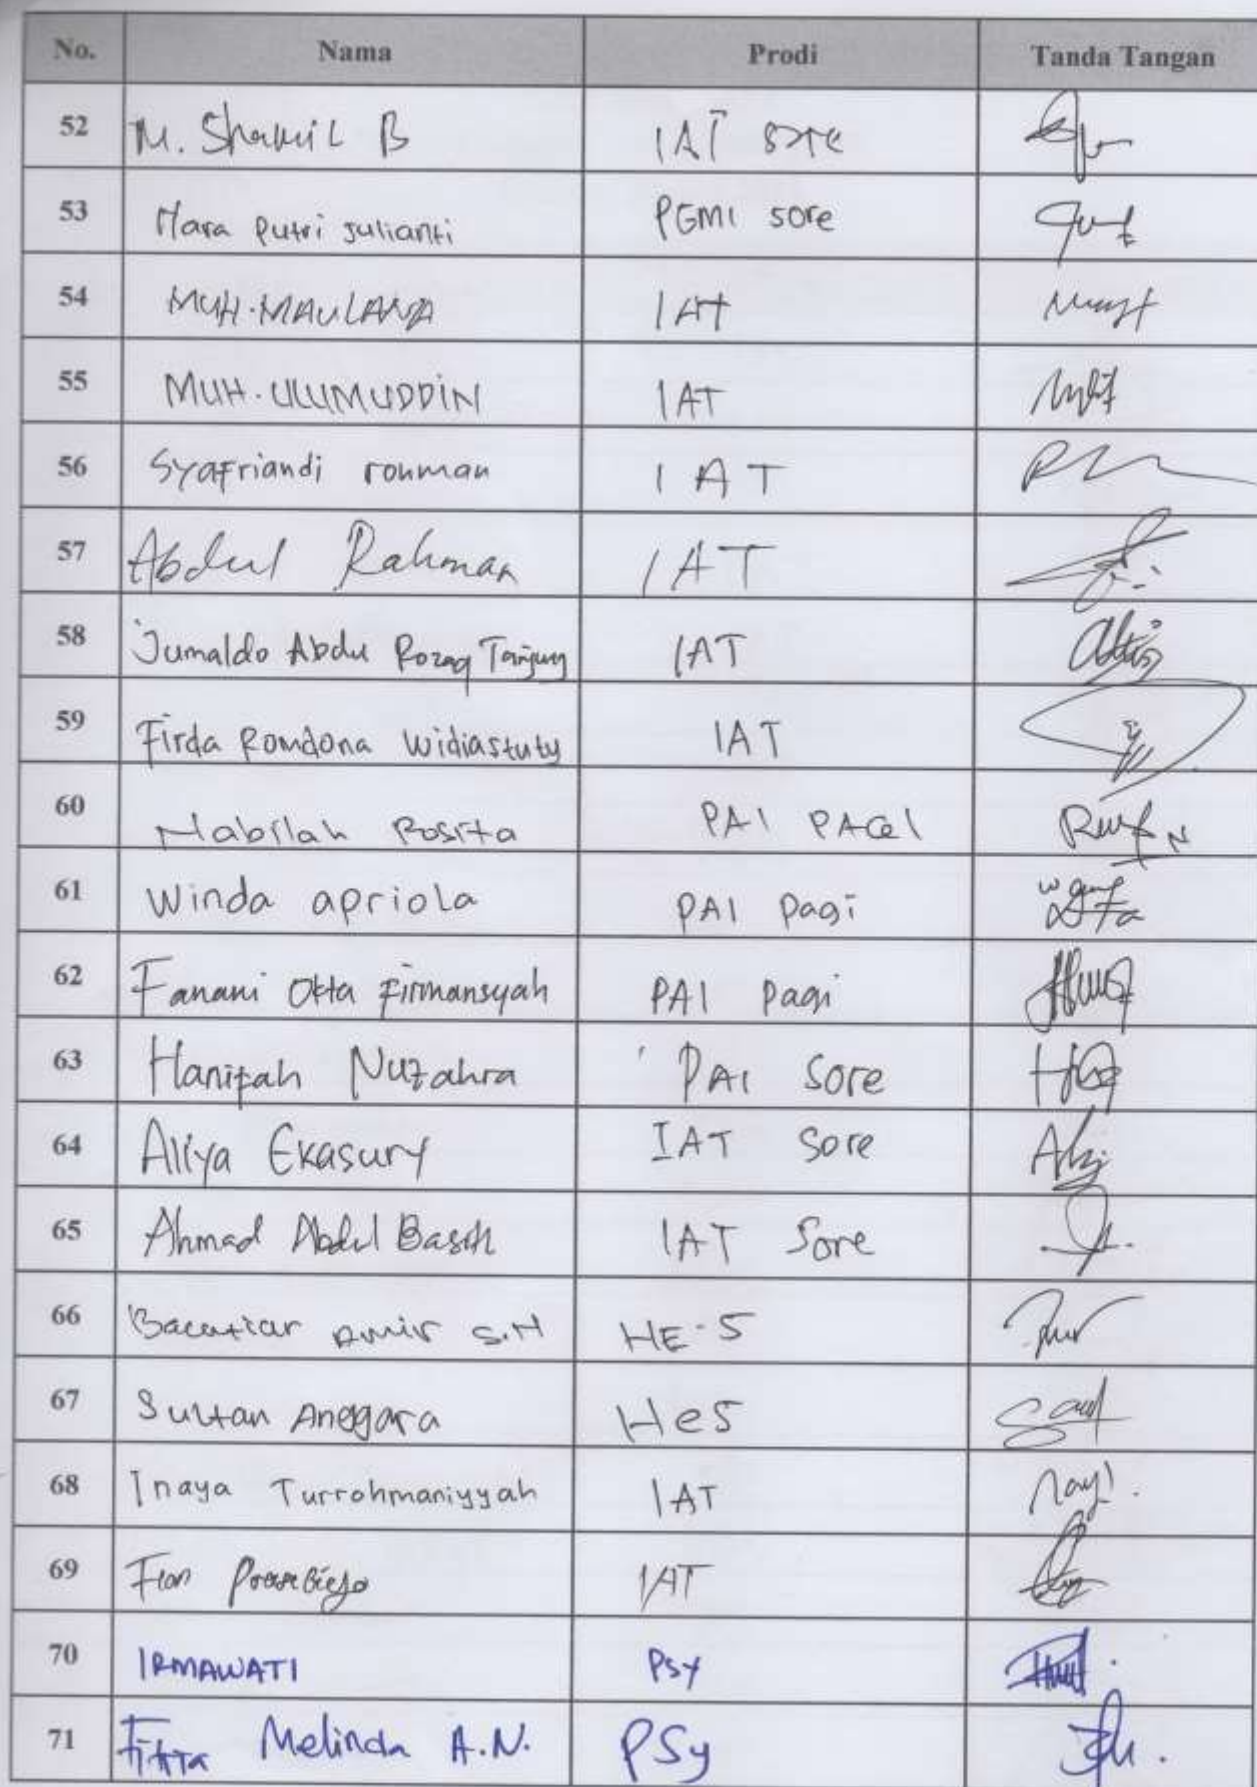 No. Nama Prodi Tanda Tangan
52 M. Shamil B IAT sore
53 Hara Putri Julianti PGMI sore
54 MUH. MAULANA IAT
55 MUH. ULUMUDDIN IAT
56 Syafriandi rohman IAT
57 Abdul Rahman IAT
58 Jumaldo Abdu Rozaq Tanjung IAT
59 Firda Romdona Widiastuty IAT
60 Nabilah Rosita PAI PAGI
61 Winda apriola PAI Pagi
62 Fanani Okta Firmansyah PAI Pagi
63 Hanifah Nuzahra PAI Sore
64 Aliya Ekasury IAT Sore
65 Ahmad Abdul Basith IAT Sore
66 Amir S.H HE-S
67 Sultan Anggara HeS
68 Inaya Turrohmaniyyah IAT
69 IAT
70 IRMAWATI PSY
71 Melinda A.N. PSy